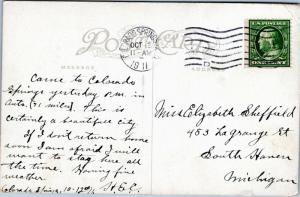 Post Card
COLORADO SPRINGS
OCT 12
11 - AM
1911
D
U.S. POSTAGE
ONE CENT
MESSAGE
ADDRESS
Came to Colorado
Springs yesterday P.M. in
Auto. (75 miles). This is
certainly a beautiful city
If I don't return home
soon I am afraid I will
want to stay here all
the time. Having fine
weather.
Colorado 10-12-11
Miss Elizabeth Sheffield
453 La grange St
South Haven
Michigan